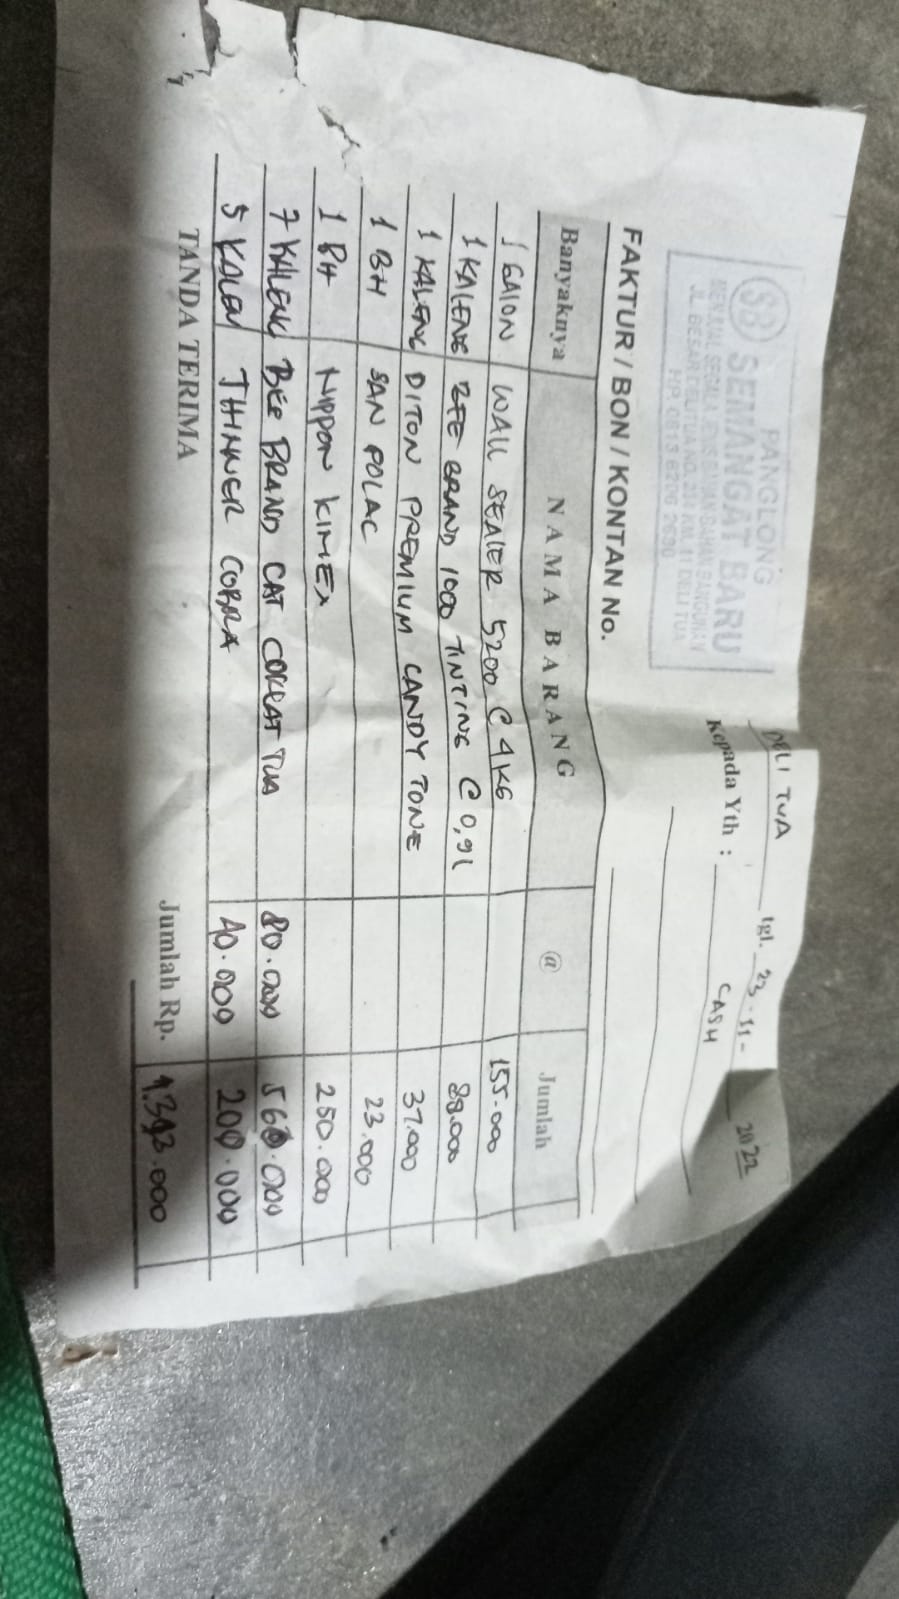 PANGLONG
SB SEMANGAT BARU
MENJUAL SEGALA JENIS BAHAN BANGUNAN
JL. BESAR DELITUA NO. KM. 11 DELI TUA
HP. 0813 6206 2690
DELI TUA tgl. 23-11- 2022
Kepada Yth : CASH
FAKTUR / BON / KONTAN No.
Banyaknya NAMA BARANG @ Jumlah
1 GALON WALL SEALER 5200 C 4KG 155.000
1 KALENG BEE BRAND 1000 TINTING C 0,9L 88.000
1 KALENG DITON PREMIUM CANDY TONE 37.000
1 BH SAN POLAC 23.000
1 BH NIPPON KIMEX 250.000
7 KALENG BEE BRAND CAT COKLAT TUA 80.000 560.000
5 KALEN THINNER COBRA 40.000 200.000
TANDA TERIMA Jumlah Rp. 1.313.000